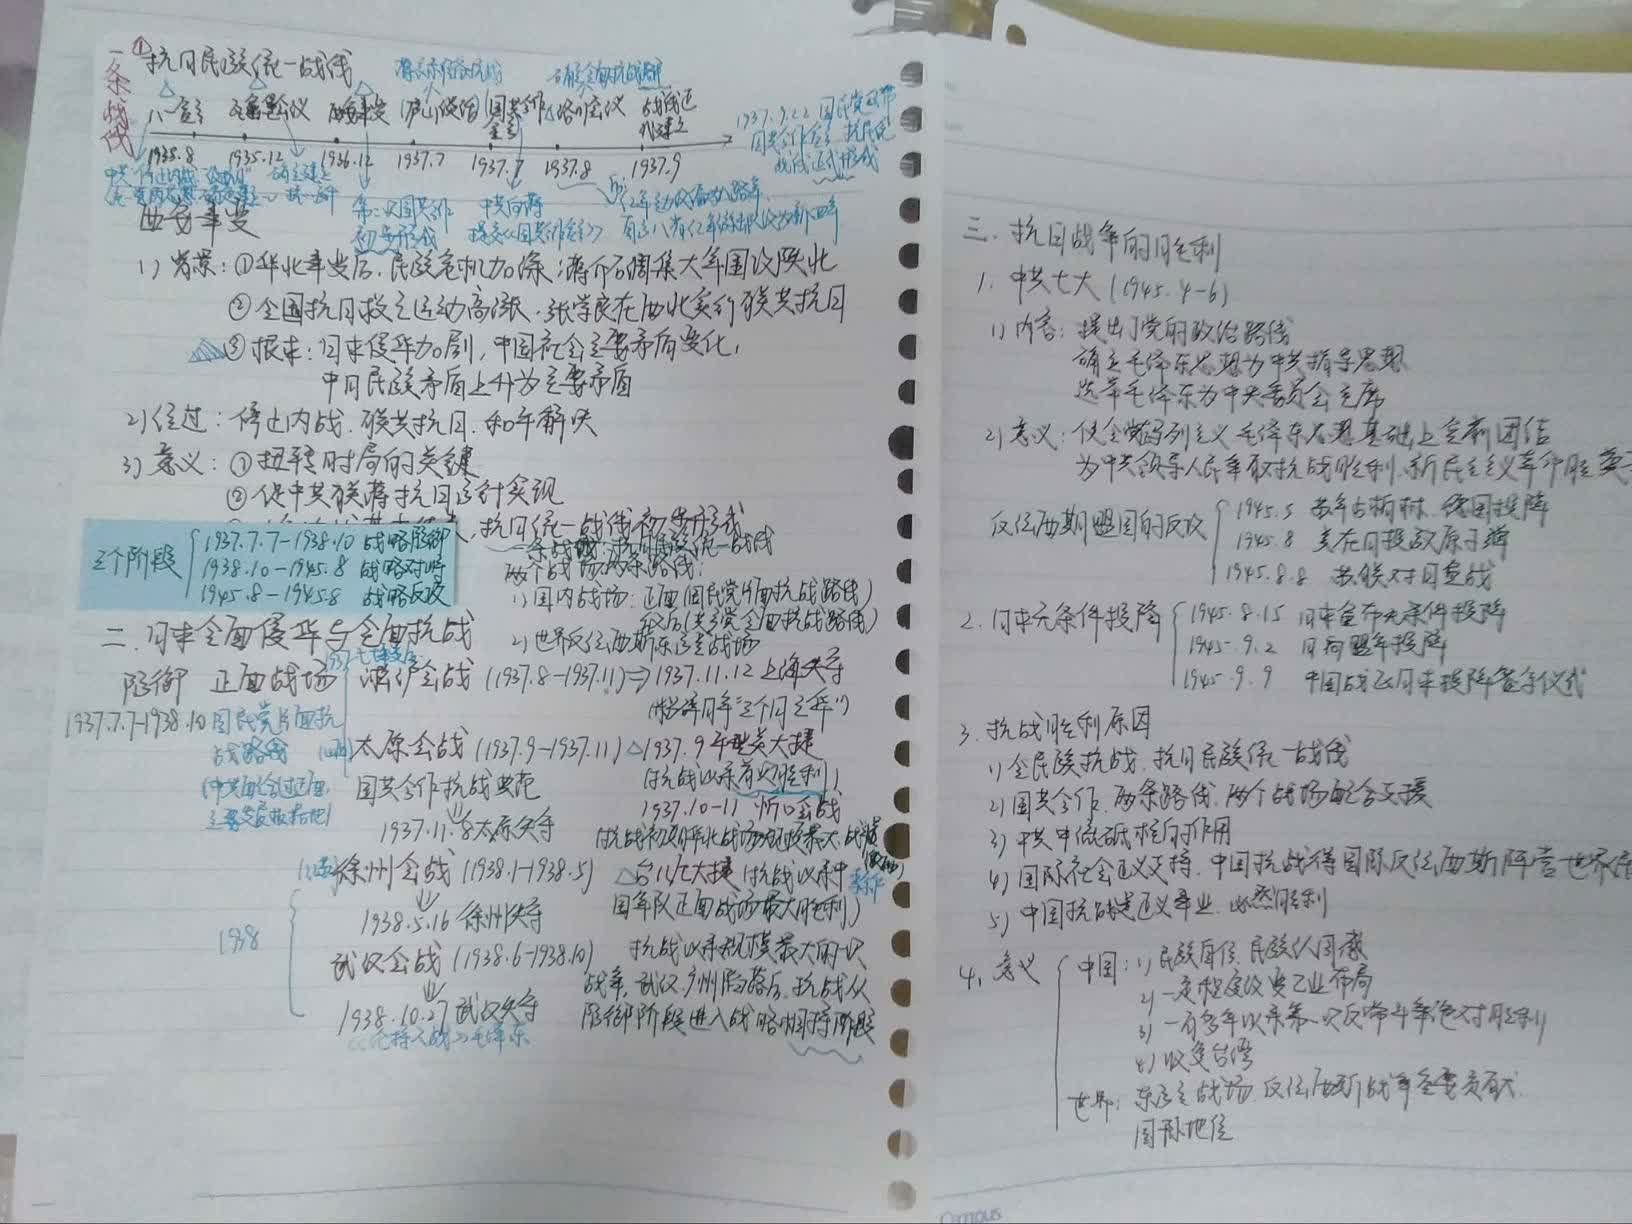 一条战线
①抗日民族统一战线
八一宣言 瓦窑堡会议 西安事变 庐山谈话 国共合作宣言 洛川会议 战线正式建立
1935.8 1935.12 1936.12 1937.7 1937.7 1937.8 1937.9
1937.9.22 国民党公布
国共合作宣言 抗民统
战线正式形成
第二次国共合作
初步形成
中共向蒋
提交《国共合作宣言》
西安事变
1) 背景:①华北事变后,民族危机加深;蒋介石调集大军围攻陕北
②全国抗日救亡运动高涨,张学良在西北实行联共抗日
③根本:日本侵华加剧,中国社会主要矛盾变化,
中日民族矛盾上升为主要矛盾
2) 经过:停止内战,联共抗日,和平解决
3) 意义:①扭转时局的关键
②促中共联蒋抗日方针实现
抗日统一战线初步形成
三个阶段
1937.7.7-1938.10 战略防御
1938.10-1945.8 战略相持
1945.8-1945.8 战略反攻
一条战线:抗日民族统一战线
两个战场两条路线:
1) 国内战场:正面(国民党片面抗战路线)
敌后(共产党全面抗战路线)
2) 世界反法西斯东方主战场
二.日本全面侵华与全面抗战
防御 正面战场 淞沪会战 (1937.8-1937.11)⇒1937.11.12 上海失守
(粉碎日军"三个月亡华")
1937.7.7-1938.10 国民党片面抗
战路线
太原会战 (1937.9-1937.11) △1937.9 平型关大捷
(抗战以来首次胜利)
国共合作抗战典范
1937.10-11 忻口会战
1937.11.8太原失守
徐州会战 (1938.1-1938.5) △台儿庄大捷 (抗战以来中
国军队正面战场最大胜利)
1938.5.16 徐州失守
1938
武汉会战 (1938.6-1938.10) 抗战以来规模最大的一次
战争,武汉、广州陷落后,抗战从
1938.10.27 武汉失守 防御阶段进入战略相持阶段
《论持久战》毛泽东
三.抗日战争的胜利
1.中共七大 (1945.4-6)
1) 内容:提出了党的政治路线
确立毛泽东思想为中共指导思想
选举毛泽东为中央委员会主席
2) 意义:使全党马列主义 毛泽东思想基础上空前团结
为中共领导人民争取抗战胜利、新民主主义革命胜
反法西斯盟国的反攻
1945.5 苏军占柏林,德国投降
1945.8 美在日投放原子弹
1945.8.8 苏联对日宣战
2.日本无条件投降
1945.8.15 日本宣布无条件投降
1945.9.2 日向盟军投降
1945.9.9 中国战区日本投降签字仪式
3.抗战胜利原因
1) 全民族抗战,抗日民族统一战线
2) 国共合作,两条路线,两个战场配合支援
3) 中共中流砥柱的作用
4) 国际社会正义支持,中国抗战得国际反法西斯阵营 世界
5) 中国抗战是正义事业,必然胜利
4.意义
中国:1) 民族自信,民族认同感
2) 一定程度改变工业布局
3) 一百多年以来第一次反帝斗争绝对胜利
4) 收复台湾
世界:东方主战场,反法西斯战争重要贡献,
国际地位
Campus